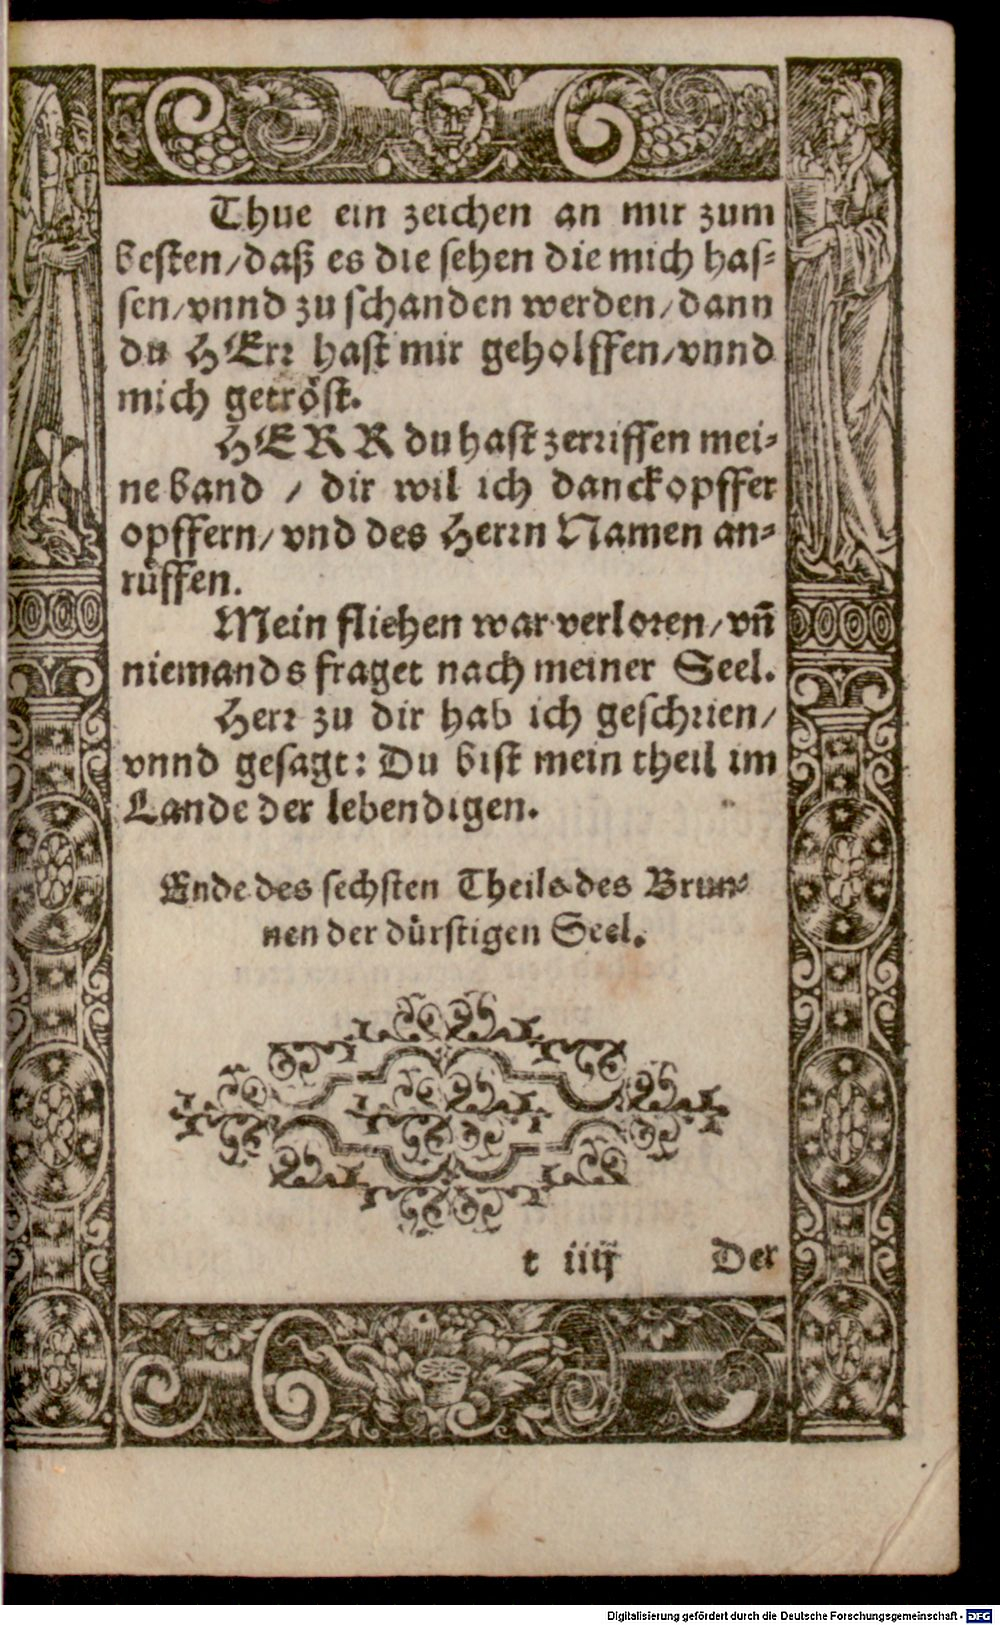 Thue ein zeichen an mir zum
besten/daß es die sehen die mich has⸗
sen/vnnd zu schanden werden/dann
du HErr hast mir geholffen/vnnd
mich getröst.
HERR du hast zerrissen mei⸗
ne band / dir wil ich danckopffer
opffern/vnd des Herrn Namen an⸗
rüffen.
Mein fliehen war verloren/vñ
niemands fraget nach meiner Seel.
Herr zu dir hab ich geschrien/
vnnd gesagt: Du bist mein theil im
Lande der lebendigen.
Ende des sechsten Theils des Brun⸗
nen der dürstigen Seel.
t iiij Der
Digitalisierung gefördert durch die Deutsche Forschungsgemeinschaft - DFG